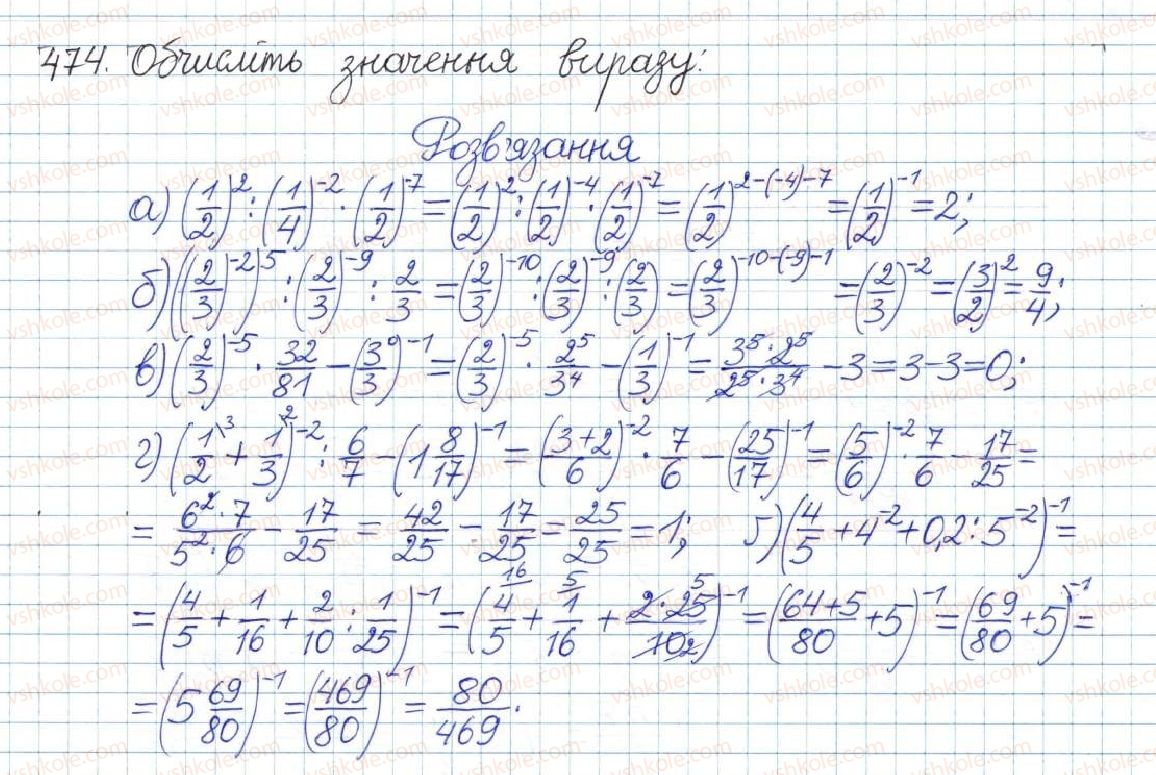 474. Обчисліть значення виразу:
Розв'язання
а) (1/2)^2 : (1/4)^-2 · (1/2)^-7 = (1/2)^2 : (1/2)^-4 · (1/2)^-7 = (1/2)^(2-(-4)-7) = (1/2)^-1 = 2;
б) ((2/3)^-2)^5 : (2/3)^-9 : 2/3 = (2/3)^-10 : (2/3)^-9 : (2/3) = (2/3)^(-10-(-9)-1) = (2/3)^-2 = (3/2)^2 = 9/4;
в) (2/3)^-5 · 32/81 - (3^0/3)^-1 = (2/3)^-5 · 2^5/3^4 - (1/3)^-1 = 3^5·2^5/2^5·3^4 - 3 = 3 - 3 = 0;
г) (1/2 \3 + 1/3 \2)^-2 : 6/7 - (1 8/17)^-1 = (3+2/6)^-2 · 7/6 - (25/17)^-1 = (5/6)^-2 · 7/6 - 17/25 =
= 6^2·7/5^2·6 - 17/25 = 42/25 - 17/25 = 25/25 = 1; ґ) (4/5 + 4^-2 + 0,2 : 5^-2)^-1 =
= (4/5 + 1/16 + 2/10 : 1/25)^-1 = (16/ 4/5 + 5/ 1/16 + 2·25 5/10 2)^-1 = (64+5/80 + 5)^-1 = (69/80 + 5)^-1 =
= (5 69/80)^-1 = (469/80)^-1 = 80/469.
vshkole.com